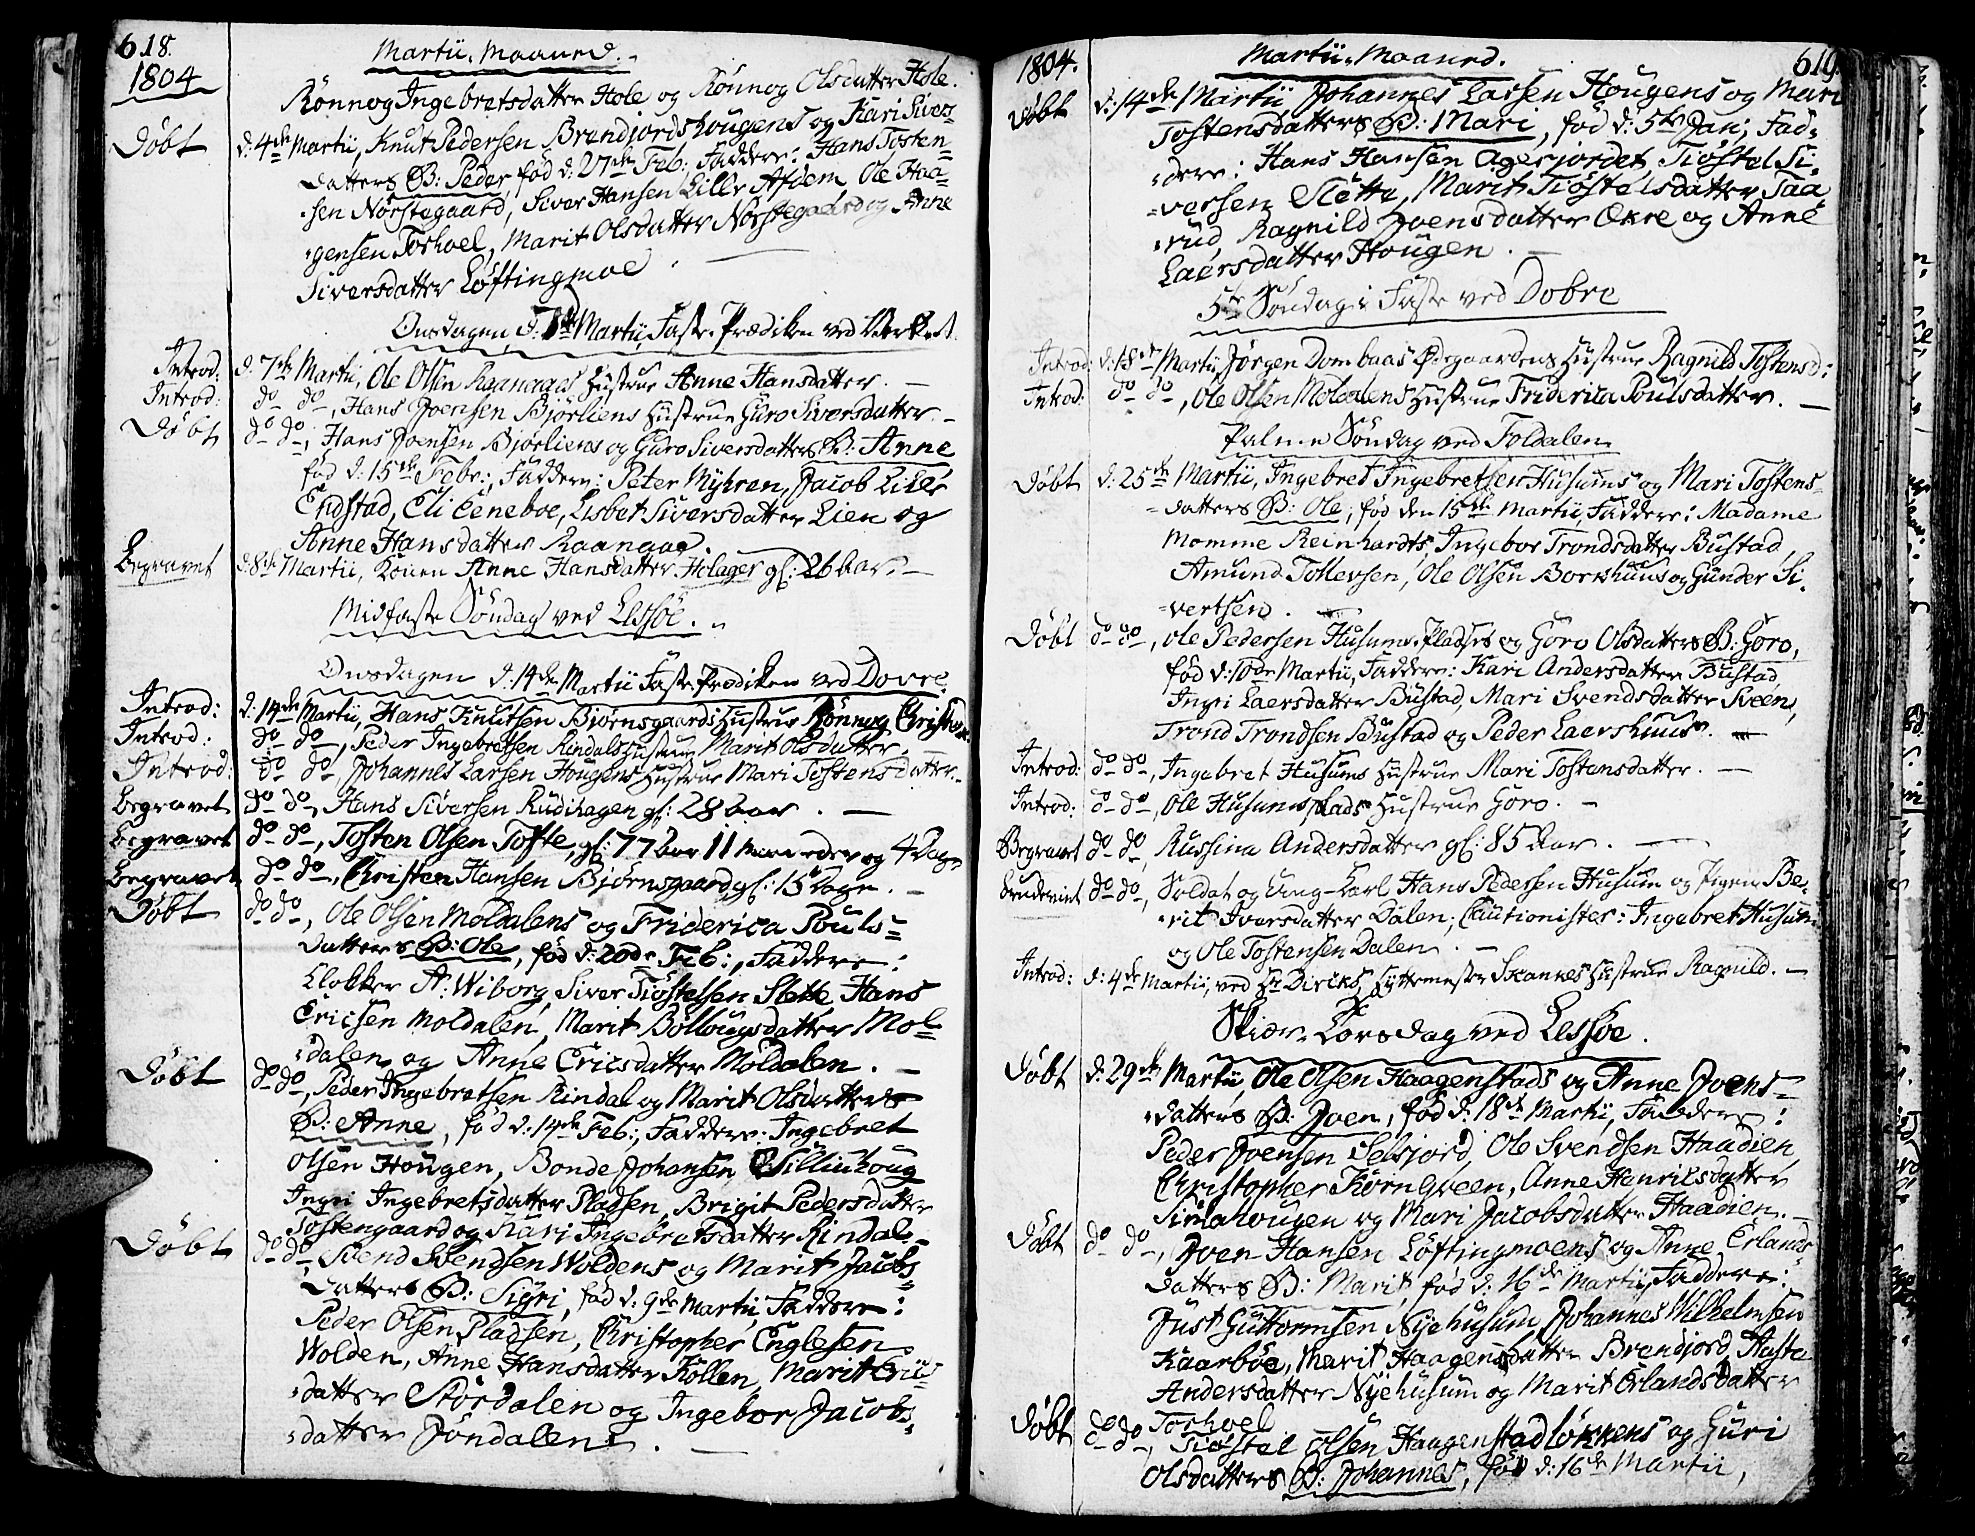 618.
1804
Martii Maaned.
Rönnog Ingebretsdatter Hole og Rönnog Olsdatter Hole.
Döbt d: 4de Martii, Knut Pedersen Brendjordshougens og Kari Sivers-
datters B: Peder, fød d: 27de Feb: Faddere: Hans Tosten-
sen Norstegaard, Siver Hansen Lille Afdem, Ole Haa-
gensen Torhoel, Marit Olsdatter Norstegaard og Anne
Siversdatter Löftingmoe.
Onsdagen d: 7de Martii, Faste-Prædiken ved Verket.
Introd: d: 7de Martii, Ole Olsen Raanaaes Hustrue Anne Hansdatter.
Introd: do do, Hans Joensen Bjørliens Hustrue Guro Siversdatter.
Döbt do do, Hans Joensen Bjørliens og Guro Siversdatters B: Anne
fød d: 15de Febr:, Faddere: Peter Myhren, Jacob Lille
Endstad, Eli Eeneboe, Lisbet Siversdatter Lien og
Anne Hansdatter Raanaae.
Begravet d: 8de Martii, Konen Anne Hansdatter Holager gl: 26 aar.
Midfaste Söndag ved Lessöe.
Onsdagen d: 14de Martii Faste Prædiken ved Dovre.
Introd: d: 14de Martii, Hans Knutsen Bjørnsgaards Hustrue Rönnog
Introd: do do, Peder Ingebretsen Rindals Hustrue Marit Olsdatter.
Introd: do do, Johannes Larsen Hougens Hustrue Mari Tostensdatter.
Begravet do do, Hans Siversen Rudihagen gl: 28 aar.
Begravet do do, Tosten Olsen Tofte, gl: 77 aar 11 Maaneder og 4 Dage
Begravet do do, Christen Hansen Bjørnsgaard gl: 15 Dage.
Döbt do do, Ole Olsen Moldalens og Friderica Pouls-
datters B: Ole, fød d: 20de Feb:, Faddere:
Klokker A: Wiborg, Siver Tiøstelsen Slette, Hans
Ericsen Moldalen, Marit Böllougsdatter Mol-
dalen og Anne Ericsdatter Moldalen.
Döbt do do, Peder Ingebretsen Rindal og Marit Olsdatters
B: Anne, fød d: 14de Feb:, Faddere: Ingebret
Olsen Hougen, Bonde Johansen Silliuhoug
Ingri Ingebretsdatter Pladsen, Brigit Pedersdatter
Tostengaard og Kari Ingebretsdatter Rindal.
Döbt do do, Svend Svendsen Woldens og Marit Jacobs-
datters B: Sigri, fød d: 9de Martii, Faddere:
Peder Olsen Pladsen, Christopher Englesen
Wolden, Anne Hansdatter Kollen, Marit Erics-
datter Stordalen og Ingebor Jacobs-
datter Jöndalen.
1804.
Martii Maaned.
619.
Döbt d: 14de Martii Johannes Larsen Hougens og Mari
Tostensdatters B: Mari, fød d: 5te Jan; Fad-
dere: Hans Hansen Agerjordet, Tiøstel Si-
versen Slette, Marit Tiøstelsdatter Faa-
rud, Ragnild Joensdatter Økre og Anne
Laersdatter Hougen.
5te Söndag i Faste ved Dobre
Introd: d: 18de Martii Jørgen Dombaas Ødegaardens Hustrue Ragnild Tostensd:
Introd: do do, Ole Olsen Moldalens Hustrue Friderica Poulsdatter.
Palme Söndag ved Foldalen
Döbt d: 25de Martii, Ingebret Ingebretsen Husums og Mari Tostens-
datters B: Ole, fød den 15de Martii, Faddere: Madame
Momme Reinhardts, Ingebor Trondsdatter Bustad,
Amund Tollevsen, Ole Olsen Borkhuus og Gunder Si-
vertsen.
Döbt do do, Ole Pedersen Husums-Pladses og Goro Olsdatters B: Goro,
fød d: 10de Martii, Faddere: Kari Andersdatter Bustad
Ingri Laersdatter Bustad, Mari Svendsdatter Sveen,
Trond Trondsen Bustad og Peder Laershuus.
Introd: do do, Ingebret Husums Hustrue Mari Tostensdatter.
Introd: do do, Ole Husumsplads Hustrue Goro.
Begravet do do, Russina Andersdatter gl: 85 Aar.
Brudeviet do do, Soldat og Ung-Karl Hans Pedersen Husum og Pigen Be-
rit Iversdatter Dalen, Cautionister: Ingebret Husum
og Ole Tostensen Dalen.
Introd: d: 4de Martii, ved Hr Dircks, Hyttemester Skannes Hustrue Ragnild.
Skiær-Torsdag ved Lessöe.
Döbt d: 29de Martii, Ole Olsen Haagenstads og Anne Joens-
datters B: Joen, fød d: 18de Martii, Faddere:
Peder Joensen Selsjord, Ole Svendsen Haadien,
Christopher Kornqveen, Anne Henriksdatter
og Mari Jacobsdatter Haadien.
Döbt do do, Joen Hansen Löftingmoens og Anne Erlands-
datters B: Marit, fød d: 16de Martii, Faddere:
Just Guttormsen Nyehusum, Johannes Wilhelmsen
Kaarböe, Marit Haagensdatter Brendjord, Aaste
Andersdatter Nyehusum og Marit Erlandsdatter
Torhoel
Döbt do do, Tiøstel Olsen Haagenstadløkkens og Guri
Olsdatters B: Johannes, fød d: 16de Martii,